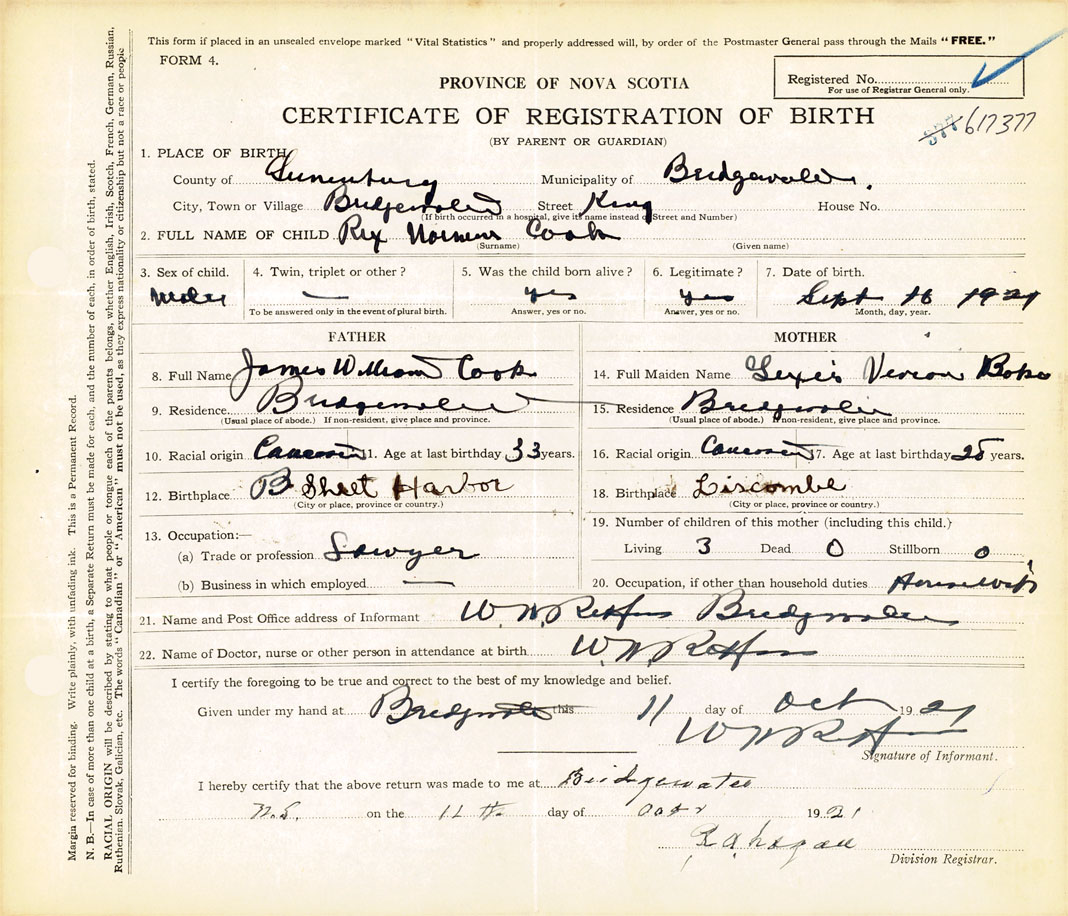 This form if placed in an unsealed envelope marked "Vital Statistics" and properly addressed will, by order of the Postmaster General pass through the Mails "FREE."
FORM 4.
Registered No.
For use of Registrar General only.
PROVINCE OF NOVA SCOTIA
CERTIFICATE OF REGISTRATION OF BIRTH
617377
(BY PARENT OR GUARDIAN)
1. PLACE OF BIRTH
County of Lunenburg Municipality of Bridgewater
City, Town or Village Bridgewater Street King House No.
(If birth occurred in a hospital, give its name instead of Street and Number)
2. FULL NAME OF CHILD Rex Norman Cook
(Surname) (Given name)
3. Sex of child. 4. Twin, triplet or other? 5. Was the child born alive? 6. Legitimate? 7. Date of birth.
Male — yes yes Sept 16 1921
To be answered only in the event of plural birth. Answer, yes or no. Answer, yes or no. Month, day, year.
FATHER
8. Full Name James William Cook
9. Residence Bridgewater
(Usual place of abode.) If non-resident, give place and province.
10. Racial origin 11. Age at last birthday 33 years.
12. Birthplace Sheet Harbor
(City or place, province or country.)
13. Occupation:—
(a) Trade or profession Sawyer
(b) Business in which employed —
MOTHER
14. Full Maiden Name
15. Residence Bridgewater
(Usual place of abode.) If non-resident, give place and province.
16. Racial origin 17. Age at last birthday years.
18. Birthplace Liscombe
(City or place, province or country.)
19. Number of children of this mother (including this child.)
Living 3 Dead 0 Stillborn 0
20. Occupation, if other than household duties Housewife
21. Name and Post Office address of Informant Bridgewater
22. Name of Doctor, nurse or other person in attendance at birth
I certify the foregoing to be true and correct to the best of my knowledge and belief.
Given under my hand at Bridgewater this 11 day of Oct 1921
Signature of Informant.
I hereby certify that the above return was made to me at Bridgewater
N.S. on the 11th day of Octr 1921
Division Registrar.
Margin reserved for binding. Write plainly, with unfading ink. This is a Permanent Record.
N. B.—In case of more than one child at a birth, a Separate Return must be made for each, and the number of each, in order of birth, stated.
RACIAL ORIGIN will be described by stating to what people or tongue each of the parents belongs, whether English, Irish, Scotch, French, German, Russian,
Ruthenian, Slovak, Galician, etc. The words "Canadian" or "American" must not be used, as they express nationality or citizenship but not a race or people